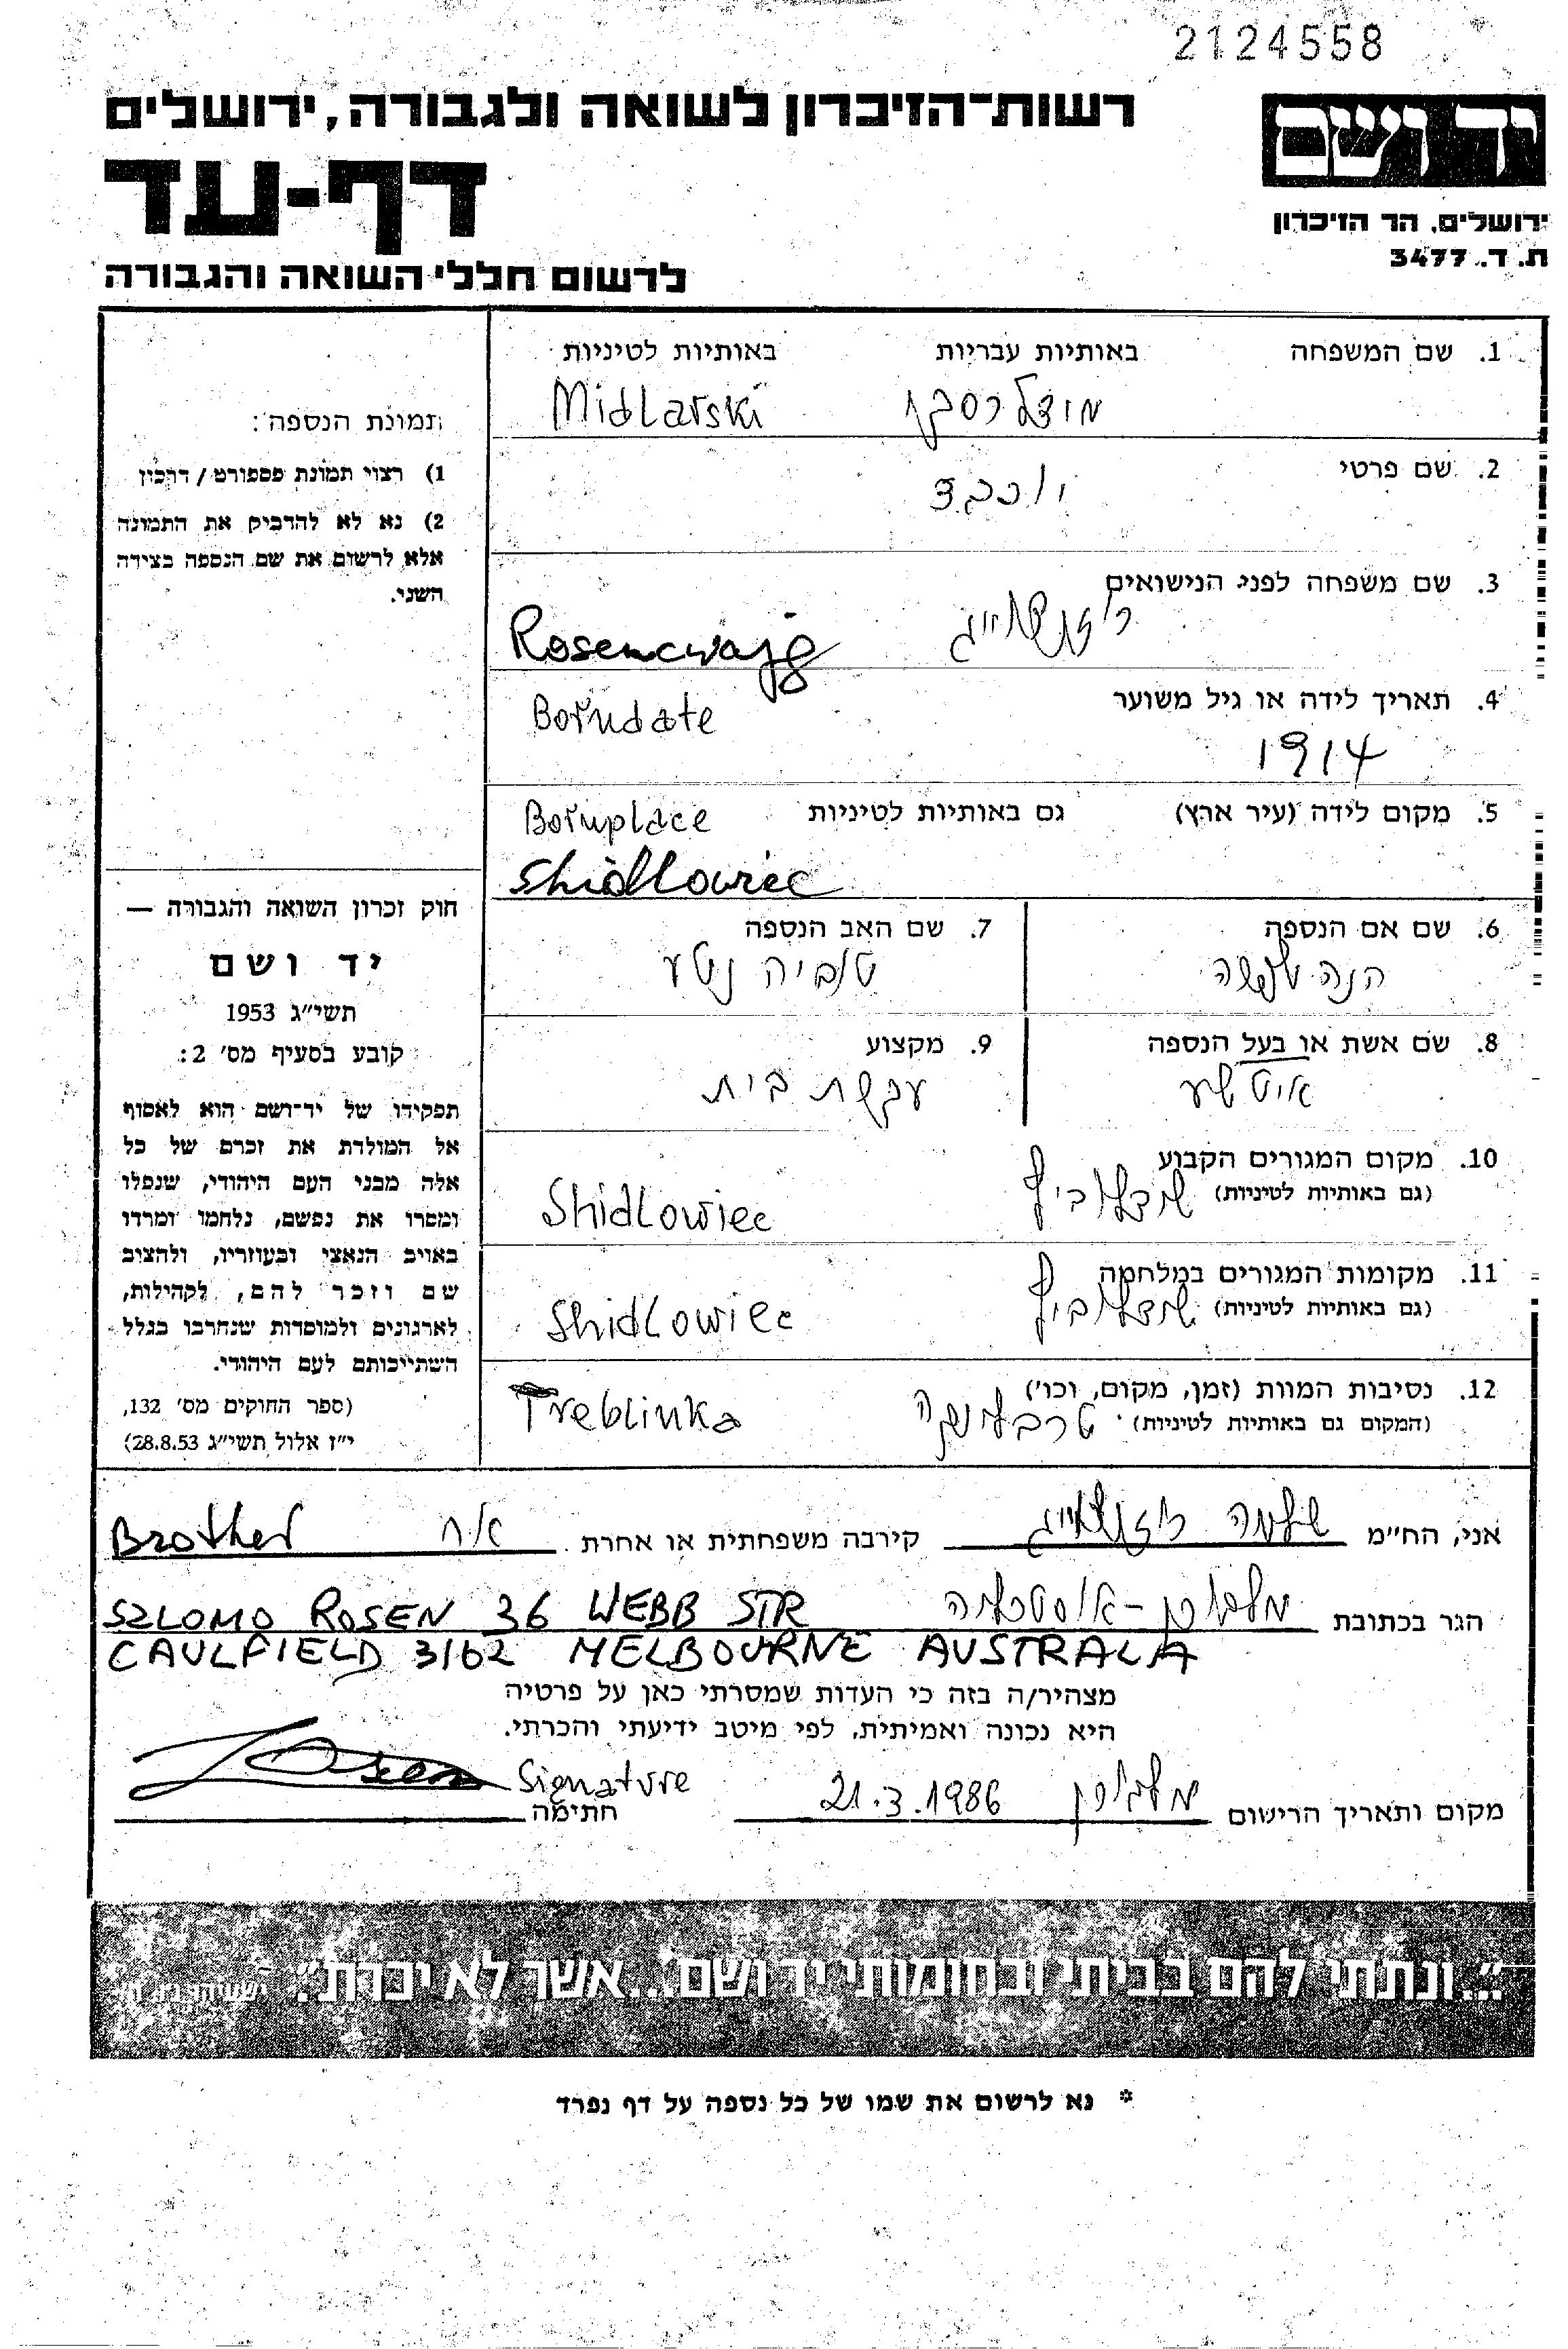 2124558
יד ושם
רשות־הזיכרון לשואה ולגבורה, ירושלים
דף-עד
ירושלים, הר הזיכרון
ת. ד. 3477
לרשום חללי השואה והגבורה
1. שם המשפחה באותיות עבריות באותיות לטיניות
Midlarski
2. שם פרטי
יוכבד
3. שם משפחה לפני הנישואים
Rosencwajg
4. תאריך לידה או גיל משוער
Borndate
1914
5. מקום לידה (עיר ארץ) גם באותיות לטיניות Bornplace
Shidlowiec
6. שם אם הנספה 7. שם האב הנספה
הנה טוביה נטע
8. שם אשת או בעל הנספה 9. מקצוע
עקרת בית
10. מקום המגורים הקבוע
(גם באותיות לטיניות) שידלוביץ Shidlowiec
11. מקומות המגורים במלחמה
(גם באותיות לטיניות) שידלוביץ Shidlowiec
12. נסיבות המוות (זמן, מקום, וכו')
(המקום גם באותיות לטיניות) טרבלינקה Treblinka
תמונת הנספה:
1) רצוי תמונת פספורט / דרכון
2) נא לא להדביק את התמונה
אלא לרשום את שם הנספה בצידה
השני.
חוק זכרון השואה והגבורה —
יד ושם
תשי״ג 1953
קובע בסעיף מס׳ 2:
תפקידו של יד־ושם הוא לאסוף
אל המולדת את זכרם של כל
אלה מבני העם היהודי, שנפלו
ומסרו את נפשם, נלחמו ומרדו
באויב הנאצי ובעוזריו, ולהציב
שם וזכר להם, לקהילות,
לארגונים ולמוסדות שנחרבו בגלל
השתייכותם לעם היהודי.
(ספר החוקים מס׳ 132,
י״ז אלול תשי״ג 28.8.53)
אני, הח״מ שלמה רוזנצווייג קירבה משפחתית או אחרת אח Brother
הגר בכתובת מלבורן - אוסטרליה SZLOMO ROSEN 36 WEBB STR
CAULFIELD 3162 MELBOURNE AUSTRALIA
מצהיר/ה בזה כי העדות שמסרתי כאן על פרטיה
היא נכונה ואמיתית, לפי מיטב ידיעתי והכרתי.
מקום ותאריך הרישום מלבורן 21.3.1986 Signature
חתימה Rosen
״...ונתתי להם בביתי ובחומותי יד ושם...אשר לא יכרת״. ישעיהו נו, ה
* נא לרשום את שמו של כל נספה על דף נפרד